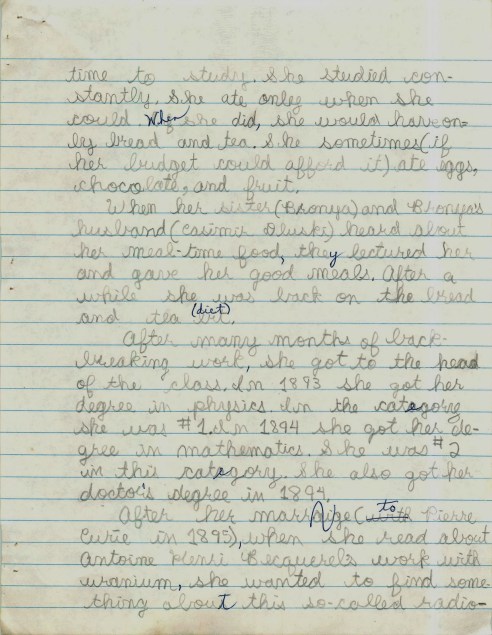 time to study. She studied con-
stantly. She ate only when she
could When she did, she would have on-
ly bread and tea. She sometimes (if
her budget could afford it) ate eggs,
chocolate, and fruit.
When her sister (Bronya) and Bronya's
husband (Casimir Dluski) heard about
her meal-time food, they lectured her
and gave her good meals. After a
while she was back on the bread
and tea (diet)
After many months of back-
breaking work, she got to the head
of the class. In 1893 she got her
degree in physics. In the category
she was #1. In 1894 she got her de-
gree in mathematics. She was #2
in this category. She also got her
doctor's degree in 1894.
After her marraige (with to Pierre
Curie in 1895), when she read about
Antoine Henri Becquerel's work with
uranium, she wanted to find some-
thing about this so-called radio-